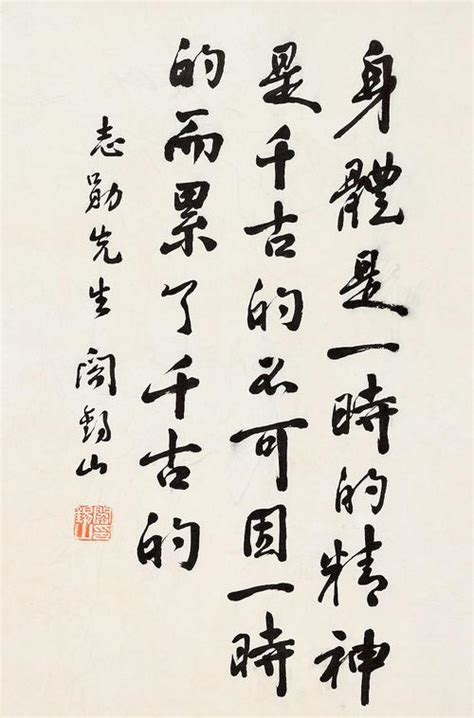 身體是一時的精神
是千古的不可因一時
的而累了千古的
志勛先生 閻錫山